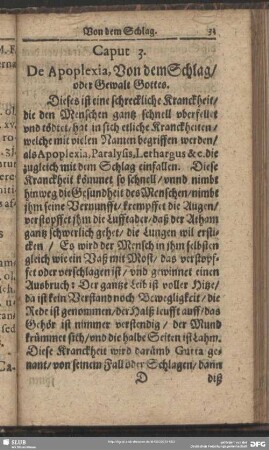 Von dem Schlag. 33
Caput 3.
De Apoplexia, Von dem Schlag/
oder Gewalt Gottes.
Dieses ist eine schreckliche Kranckheit/
die den Menschen gantz schnell vberfellet
vnd tödtet/ hat in sich etliche Kranckheiten/
welche mit vielen Namen begriffen werden/
als Apoplexia, Paralysis, Lethargus &c. die
zugleich mit dem Schlag einfallen. Diese
Kranckheit kömmet so schnell/ vnnd nimbt
hinweg die Gesundheit des Menschen/ nimbt
jhm seine Vernunfft/ krempffet die Augen/
verstopffet jhm die Lufftader/ daß der Atham
gantz schwerlich gehet/ die Lungen wil ersti-
cken/ Es wird der Mensch in jhm selbsten
gleich wie ein Vaß mit Most/ das verstopf-
fet oder verschlagen ist/ vnd gewinnet einen
Ausbruch: Der gantze Leib ist voller Hitze/
da ist kein Verstand noch Bewegligkeit/ die
Rede ist genommen/ der Halß leufft auff/ das
Gehör ist nimmer verstendig/ der Mund
krümmet sich/ vnd die halbe Seiten ist lahm.
Diese Kranckheit wird darumb Gutta ge-
nant/ von seinem Fall oder Schlagen/ dann
D diß